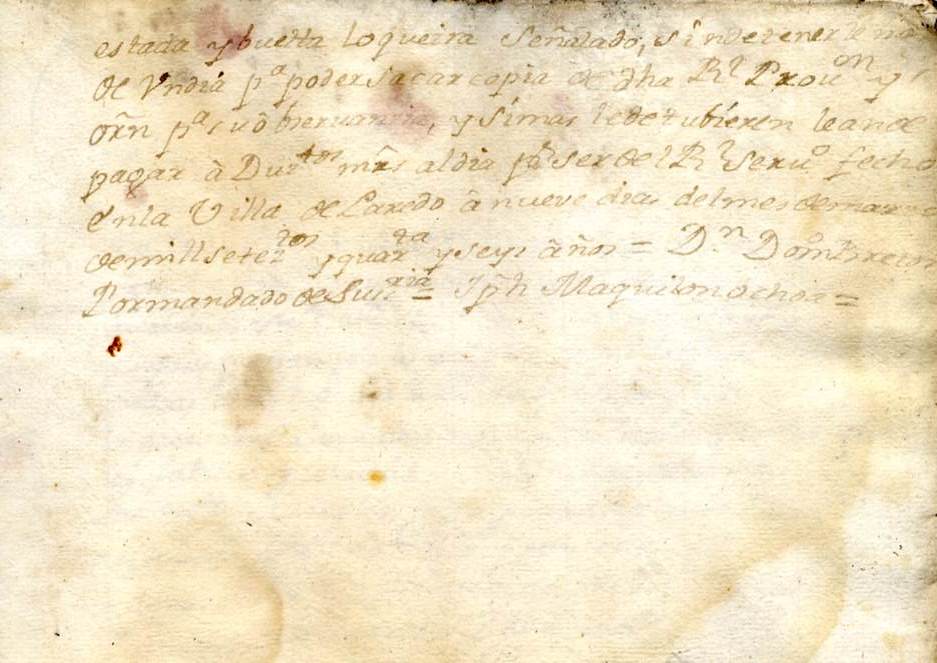 estada y buelta lo que ira señalado, sin detenerle mas
de Vn dia pª poder sacar copia de dha Rl Prouon y
orñ pª su obseruancia, y si mas le detubieren le an de
pagar à Duztos mrs al dia pr ser del Rl Seruº fecho
en la Villa de Laredo â nueve dias del mes de marzo
de mill seteztos y quarta y seys años = Dn
Por mandado de Su = Jph Maquilon ochoa =